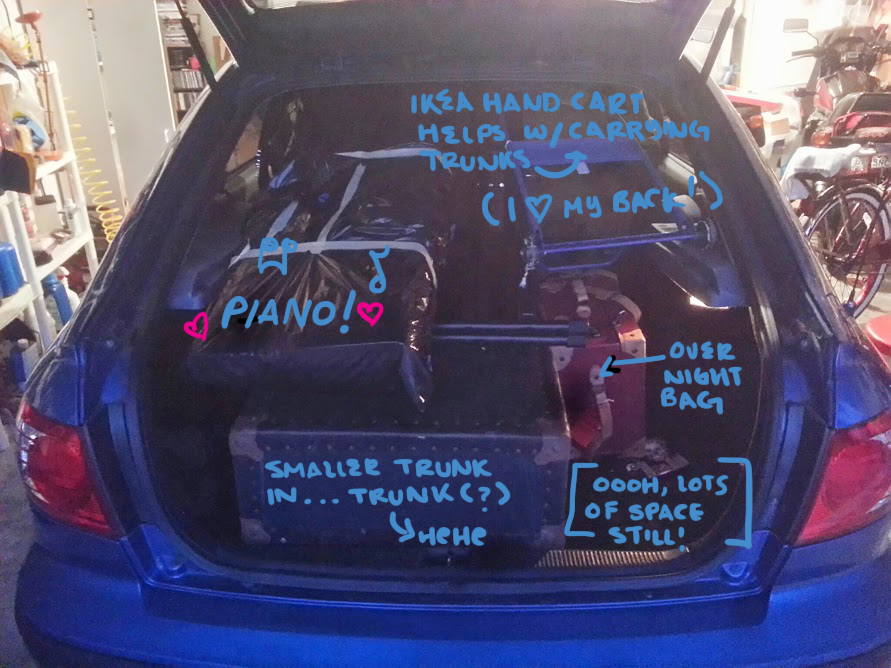 IKEA HAND CART
HELPS W/CARRYING
TRUNKS
(I ♡ MY BACK!)
PIANO!
OVER
NIGHT
BAG
SMALLER TRUNK
IN... TRUNK(?)
HEHE
[OOOH, LOTS
OF SPACE
STILL!]